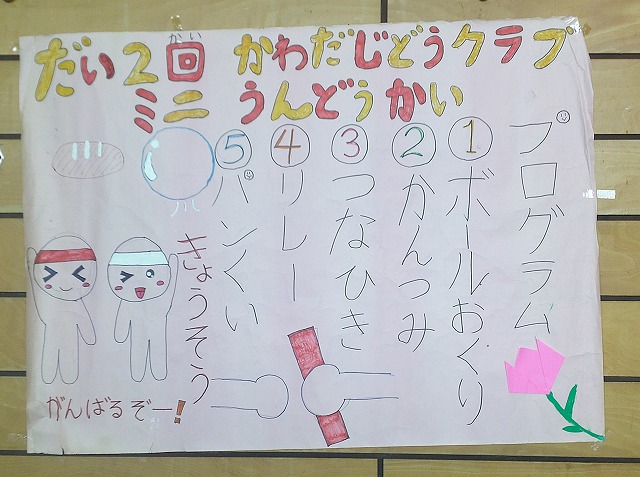 だい2回 かわだじどうクラブ
かい
ミニ うんどうかい
プログラム
① ボールおくり
② かんつみ
③ つなひき
④ リレー
⑤ パンくい
きょうそう
がんばるぞー!